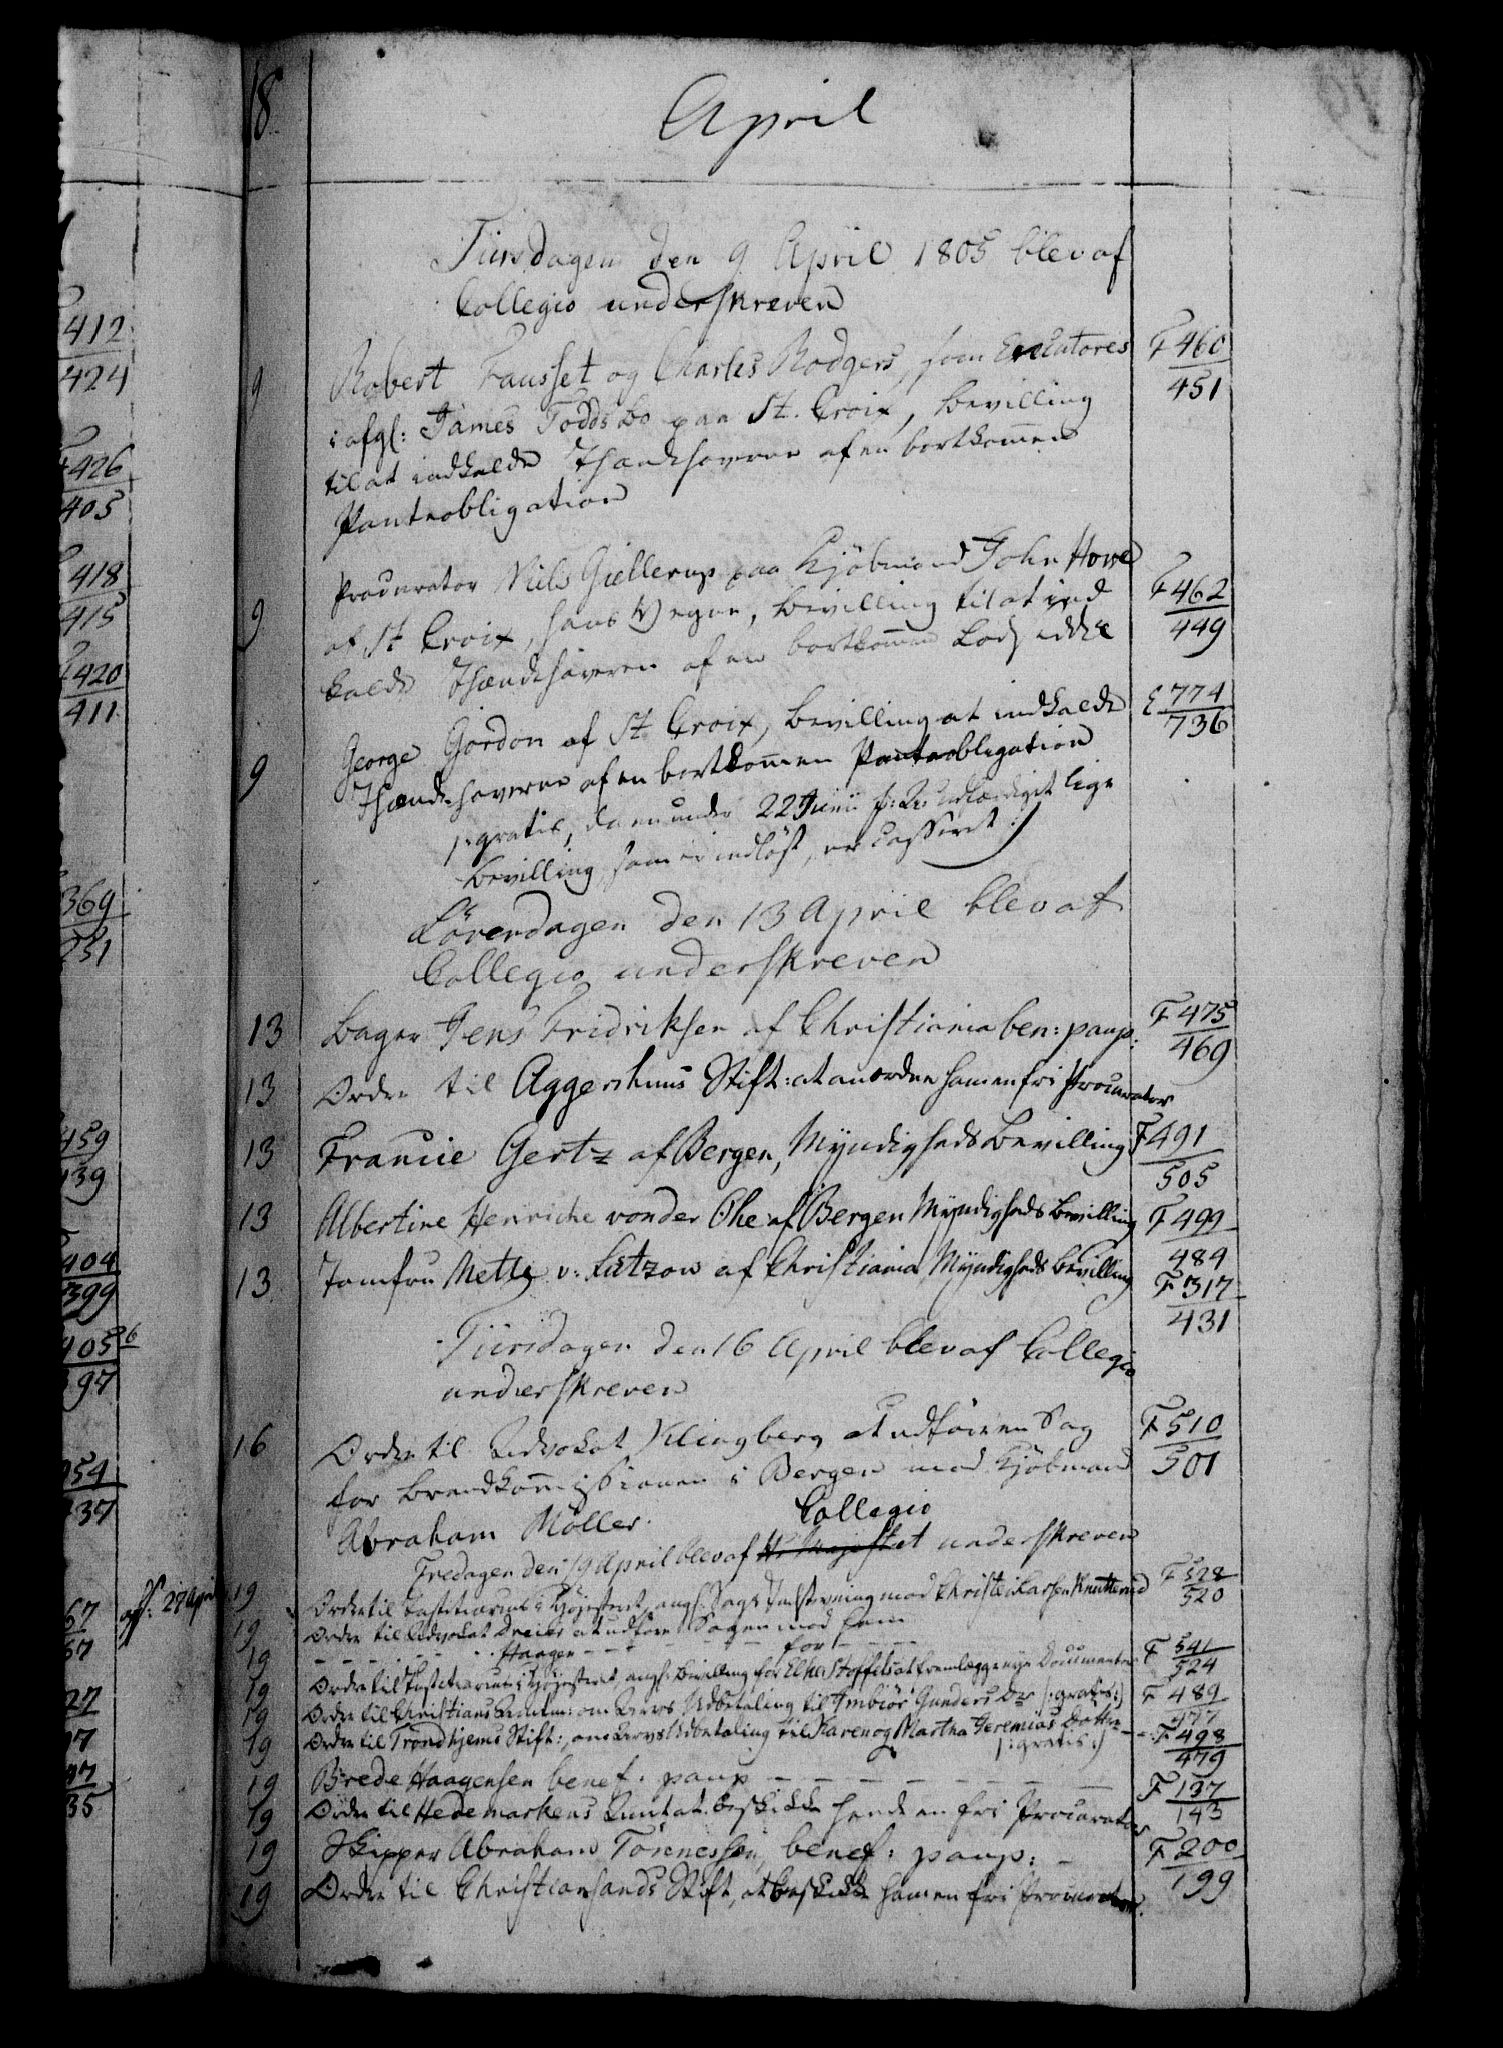 18
April
Tirsdagen den 9 April 1805 blev af
Collegio underskreven
9 Robert Fausset og Charles Rodgers, som Executores F 460/451
i afgl: James Todds Bo paa St. Croix, Bevilling
til at indkalde Ihændehaverne af en bortkommen
Panteobligation
9 Procurator Niels Giellerup paa Kjøbmand John Howe F 462/449
af St Croix, hans Vegne, Bevilling til at ind
kalde Ihændehaveren af en bortkommen
9 George Gordon af St Croix, Bevilling at indkalde E 774/736
Ihændehaverne af en bortkommen Panteobligation
/: gratis, da en under 22 Junii f: A: udfærdiget lige
Bevilling, som er indløst, er casseret :/
Löverdagen den 13 April blev af
Collegio underskreven
13 Bager Jens Fridriksen af Christiania ben: paup: F 475/469
13 Ordre til Aggershuus Stift: at anordne ham en fri Procurator
13 Francie Gertz af Bergen, Myndigheds Bevilling F 491/505
13 Albertine Henriche von der Ohe af Bergen Myndigheds Bevilling F 499/484
13 Jomfru Mette v: Lützow af Christiania Myndigheds Bevilling F 317/431
Tirsdagen den 16 April blev af Collegio
underskreven
16 Ordre til Advokat Klingberg at udføre en Sag F 510/501
for Brandkommissionen i Bergen mod Kjöbmand
Abraham Möller.
Collegio
Fredagen den 19 April blev af H: Majestet underskreven
19 Ordre til Justitiarius i Höjesteret, ang: Sags Indstevning mod Christen Larsen Knatterud F 528/520
19 Ordre til Advokat Dreier at udføre Sagen mod ham
19 - - - - - Haagen - - - for - - -
19 Ordre til Justitiarius i Höjesteret, ang: Bevilling for Elke Stoffels at fremlægge nye Documenter F 541/524
19 Ordre til Christians Amtm: om Arvs Udbetaling til Imbiör Gunders Dr /: gratis :/ F 489/477
19 Ordre til Trondhjems Stift:, om Arvs Udbetaling til Karen og Martha Jeremias Dötter - - F 498/479
/: gratis :/
19 Brede Haagensen benef: paup - - - - - - - F 137/143
19 Ordre til Hedemarkens Amt at beskikke hende en fri Procurator
19 Skipper Abraham Tönnessen, benef: paup: - F 200/199
19 Ordre til Christiansands Stift, at beskikke ham en fri Procurator.
412
424
426
405
418
415
420
411
369
251
459
439
404
399
405
6
397
954
937